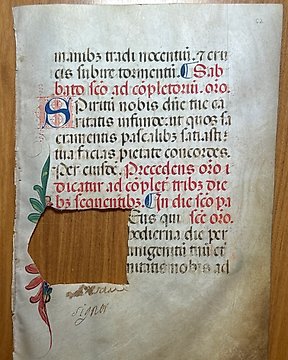 manibꝫ tradi nocentiũ. ⁊ cru
cis subire tormentũ. Sab
bato sc̃o ad cõpletoriũ. oro.
Spiritũ nobis dñe tue ca
ritatis infunde: ut quos sa
cramentis pascalibꝫ satiasti:
tua facias pietate concordes.
Per eiusdẽ. Precedens oro i
dicatur ad cõplet. tribꝫ die
bꝫ sequentibꝫ. In die sc̃o pa
Eus qui sce. oro.
hodierna die per
unigenitũ tuũ et
nitatis nobis ad